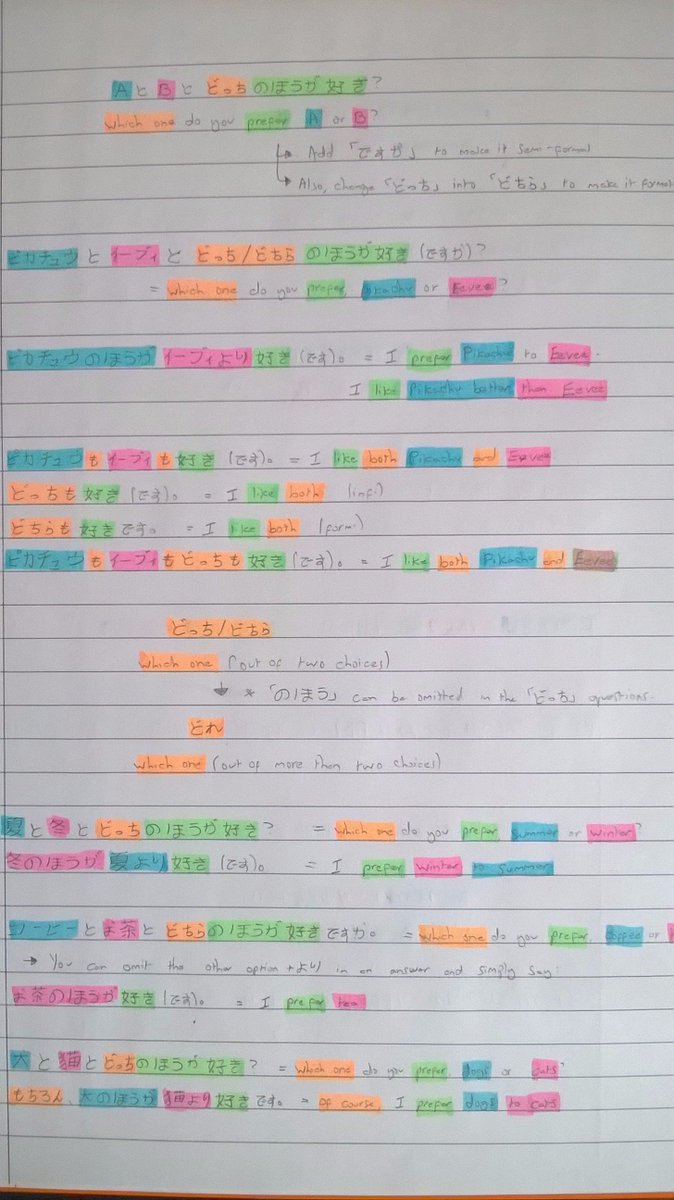 AとBとどっちのほうが好き?
which one do you prefer A or B?
↳ Add「ですか」to make it semi-formal
↳ Also, change「どっち」into「どちら」to make it formal
ピカチュウとイーブイとどっち/どちらのほうが好き(ですか)?
= which one do you prefer, Pikachu or Eevee?
ピカチュウのほうがイーブイより好き(です)。 = I prefer Pikachu to Eevee.
I like Pikachu better than Eevee
ピカチュウもイーブイも好き(です)。 = I like both Pikachu and Eevee
どっちも好き(です)。 = I like both (inf.)
どちらも好きです。 = I like both (form.)
ピカチュウもイーブイもどっちも好き(です)。 = I like both Pikachu and Eevee
どっち/どちら
which one (out of two choices)
↓ * 「のほう」can be omitted in the「どっち」questions.
どれ
which one (out of more than two choices)
夏と冬とどっちのほうが好き? = which one do you prefer summer or winter?
冬のほうが夏より好き(です)。 = I prefer winter to summer
コーヒーとお茶とどちらのほうが好きですか。 = which one do you prefer, coffee or
→ You can omit the other option + より in an answer and simply say:
お茶のほうが好き(です)。 = I prefer tea
犬と猫とどっちのほうが好き? = which one do you prefer, dogs or cats?
もちろん、犬のほうが猫より好きです。 = Of course, I prefer dogs to cats